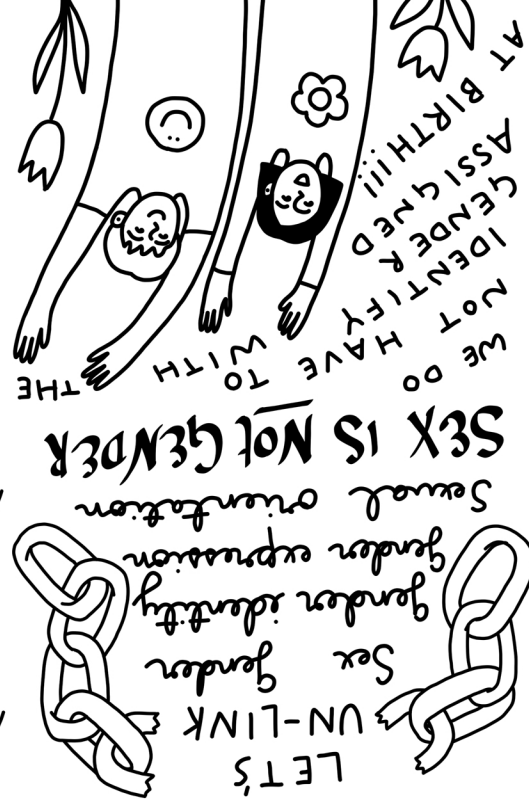 LET'S
UN-LINK
Sex gender
gender identity
gender expression
Sexual orientation
SEX IS NOT GENDER
WE DO
NOT HAVE TO
IDENTIFY WITH THE
GENDER
ASSIGNED
AT BIRTH!!!